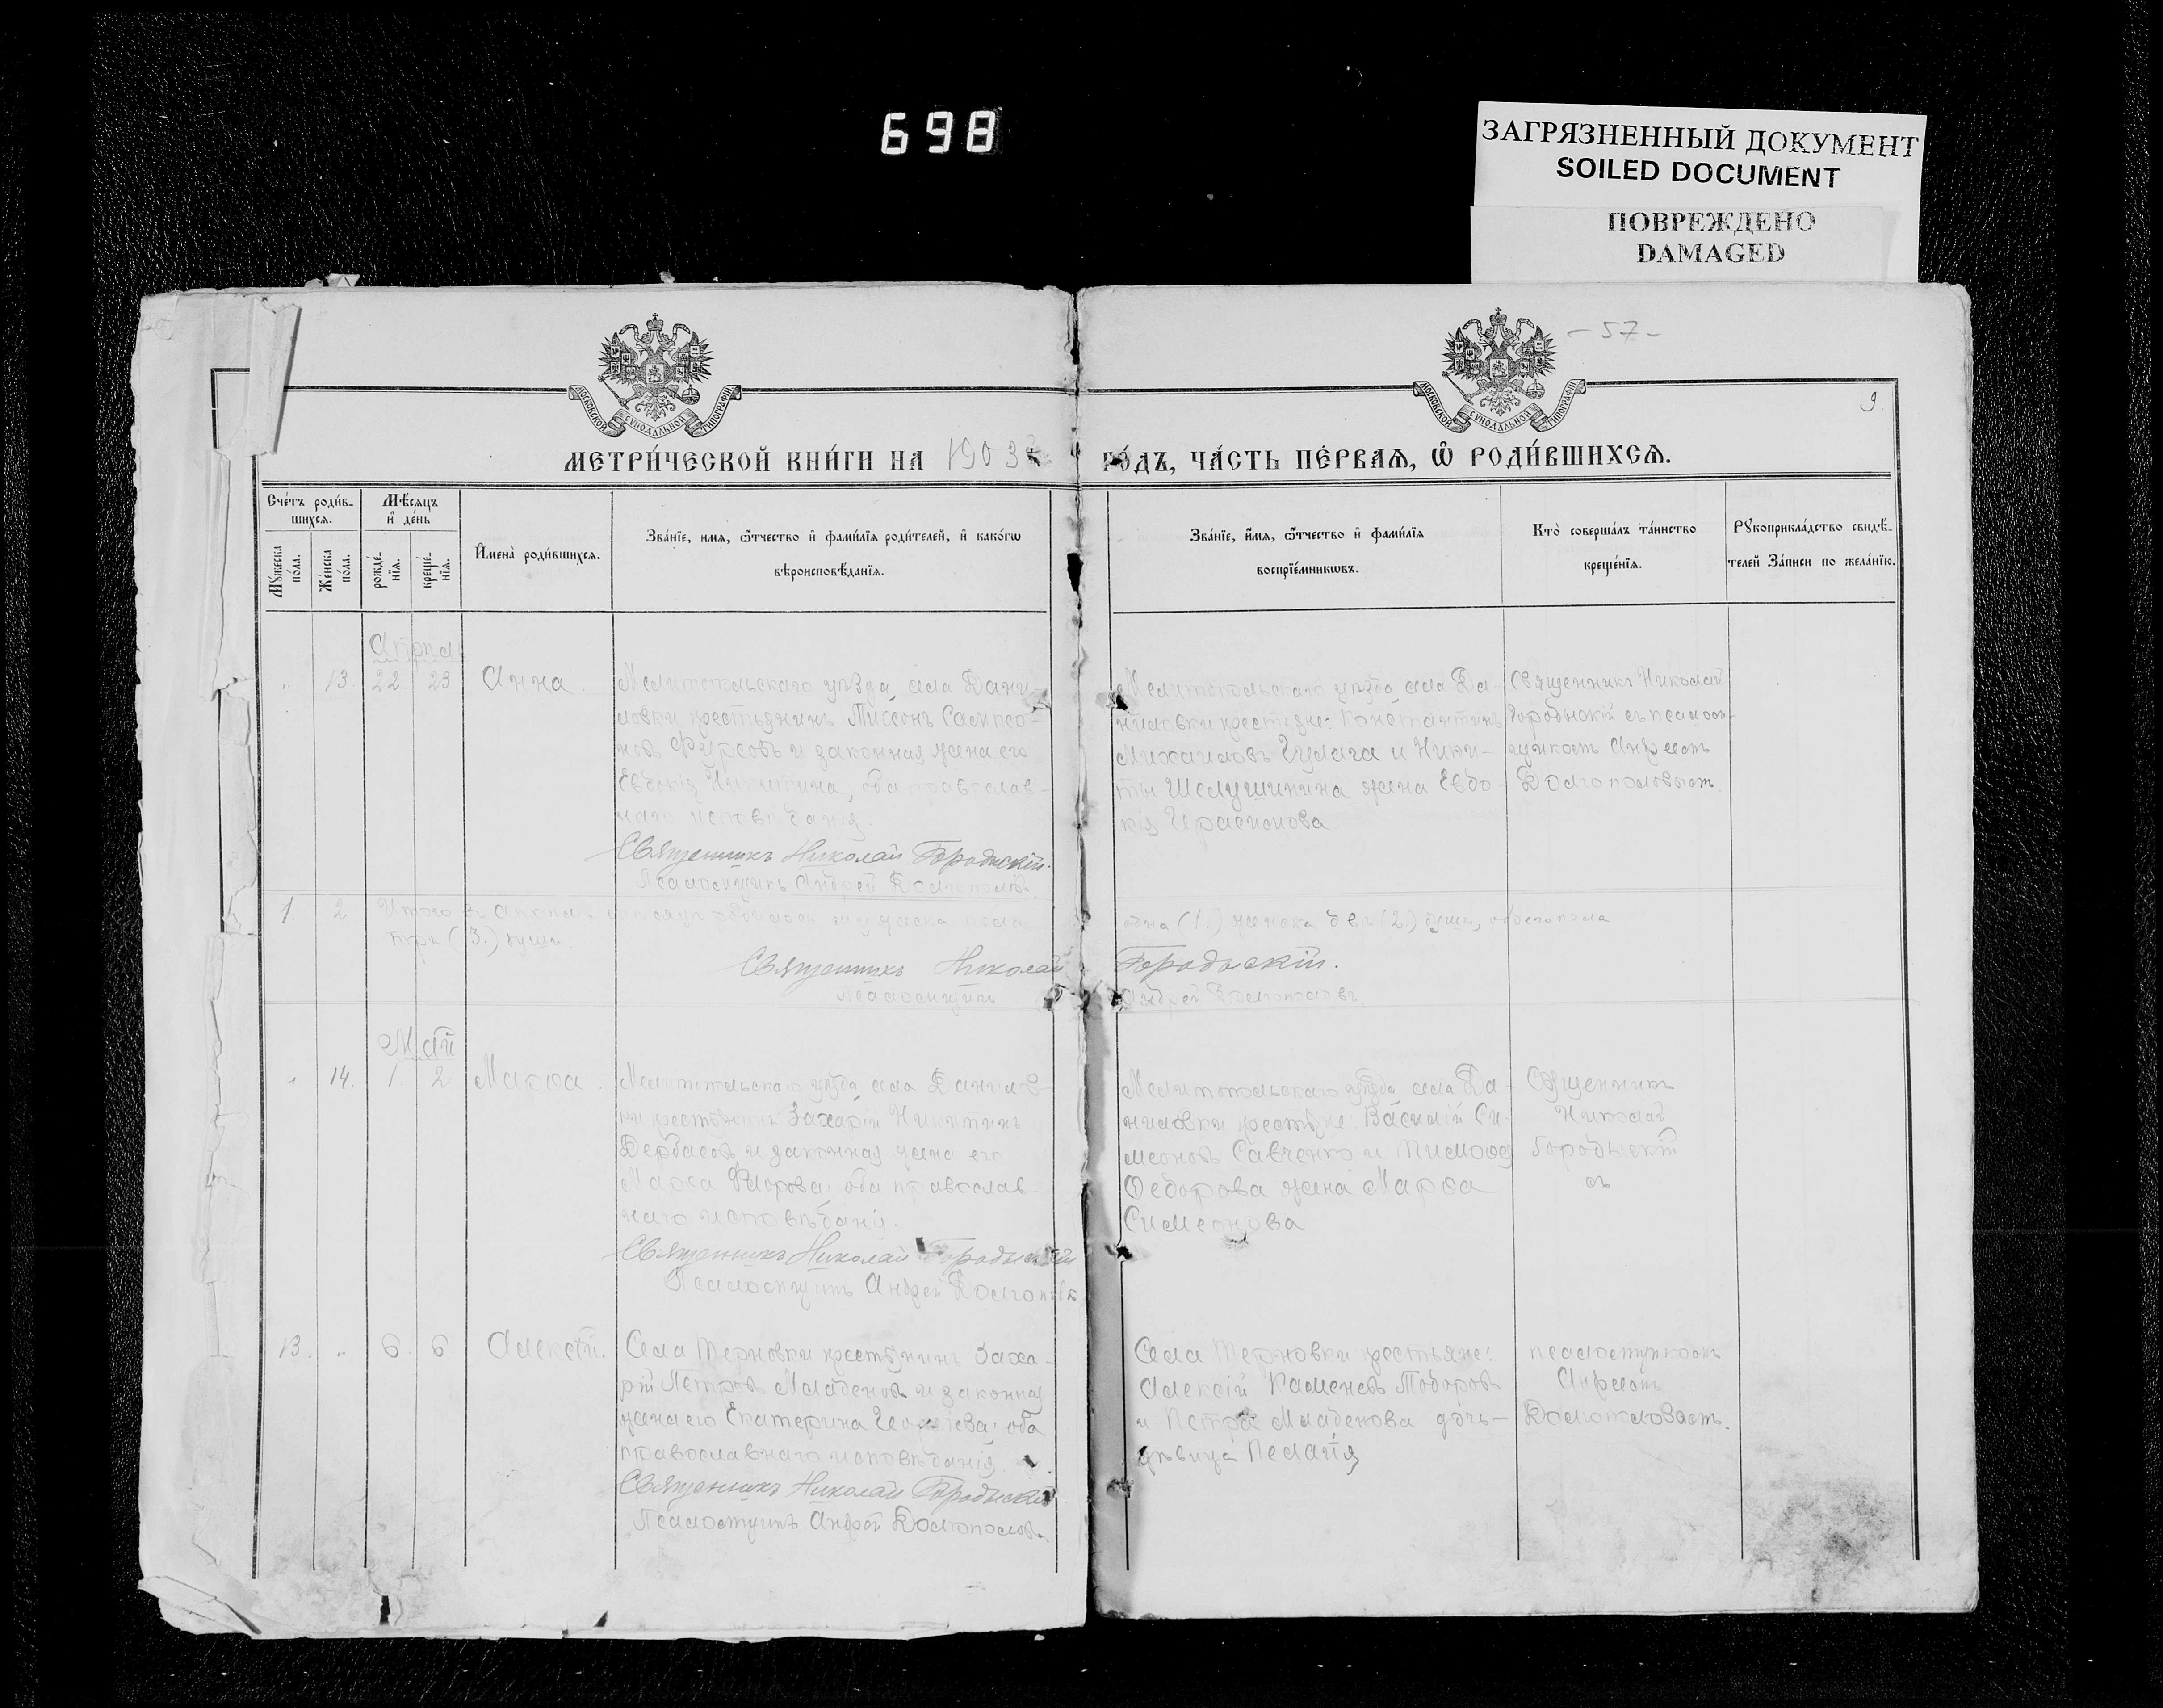 698
ЗАГРЯЗНЕННЫЙ ДОКУМЕНТ
SOILED DOCUMENT
ПОВРЕЖДЕНО
DAMAGED
- 57 -
9.
МОСКОВСКОЙ СѴНОДАЛЬНОЙ ТИПОГРАФІИ
МОСКОВСКОЙ СѴНОДАЛЬНОЙ ТИПОГРАФІИ
МЕТРИ́ЧЕСКОЙ КНИ́ГИ НА 1903 ГО́ДЪ, ЧА́СТЬ ПЕ́РВАѦ, Ѡ҆ РОДИ́ВШИХСѦ.
Сче́тъ роди́в-
шихсѧ.
Мѣ́сѧцъ
и҆ де́нь
Мꙋ́жеска
по́ла.
Же́нска
по́ла.
рожде́-
нїѧ.
креще́-
нїѧ.
И҆мена̀ роди́вшихсѧ.
Зва́нїе, имѧ, ѻ҆́тчество и҆ фами́лїѧ роди́телей, и҆ како́гѡ
вѣроисповѣ́данїѧ.
Зва́нїе, и҆́мѧ, ѻ҆́тчество и҆ фами́лїѧ
воспрїе́мникѡвъ.
Кто̀ соверша́лъ та́инство
креще́нїѧ.
Рꙋкоприкла́дство свидѣ́-
телей За́писи по жела́нїю.
Апрѣль
13. 22. 23. Анна.
Мелитопольскаго уѣзда, села Дани-
ловки крестьянинъ Сампсо-
новъ Фурсовъ и законная жена его
Евдокія Никитина, оба православ-
наго исповѣданія.
Священникъ Николай Городыскій.
Псаломщикъ Андрей Долгополовъ
Мелитопольскаго уѣзда, села Да-
ниловки крестьяне: Константинъ
Михаиловъ Гулага и Ники-
ты Шелушинина жена Евдо-
кія
Священникъ Николай
Городыскій съ псалом-
щикомъ Андреемъ
Долгополовымъ
1. 2 Итого въ Апрѣлѣ мѣсяцѣ родилось мужеска пола одна (1.) женска двѣ (2.) души, обоего пола
три (3.) души.
Священникъ Николай Городыскій.
Псаломщикъ Андрей Долгополовъ.
Май
14. 1 2 Марѳа.
Мелитопольскаго уѣзда села Данилов-
ки крестьянинъ Захарій Никитинъ
Дербасовъ и законная жена его
Марѳа Флорова, оба православ-
наго исповѣданія.
Священникъ Николай Городыскій
Псаломщикъ Андрей Долгополовъ
Мелитопольскаго уѣзда села Да-
ниловки крестьяне: Василій Си-
меоновъ Савченко и Тимоѳея
Ѳедорова жена Марѳа
Симеонова
Священникъ
Николай
Городыскій
съ
13. 6. 6. Алексій.
Села Терновки крестьянинъ Заха-
рій Петровъ Младеновъ и законная
жена его Екатерина Георгіева, оба
православнаго исповѣданія.
Священникъ Николай Городыскій
Псаломщикъ Андрей Долгополовъ
Села Терновки крестьяне:
Алексій Каменевъ Тодоровъ
и Петра Младенова дочь-
дѣвица Пелагія
псаломщикомъ
Андреемъ
Долгополовымъ.